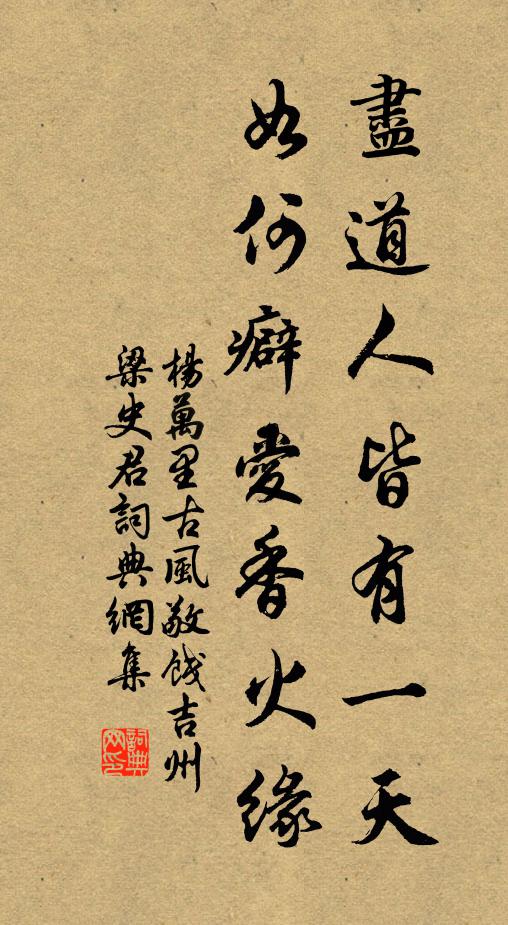 盡道人皆有一天
如何癖愛香火緣
楊萬里古風敬餞吉州
梁史君詞典網集
詞典網印